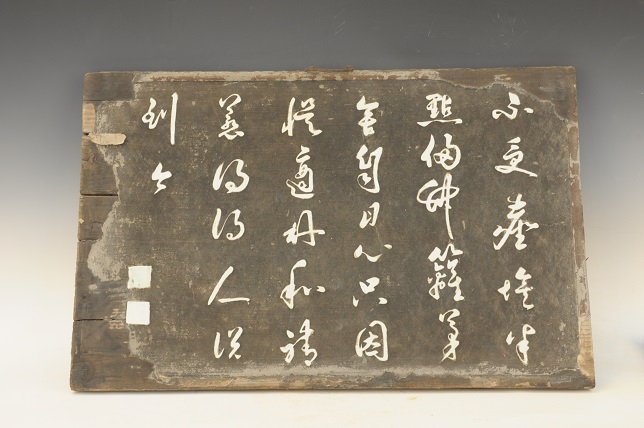 不受塵埃半
點侵竹籬茅
舍自甘心只因
悮適林和靖
惹得詩人說
到今